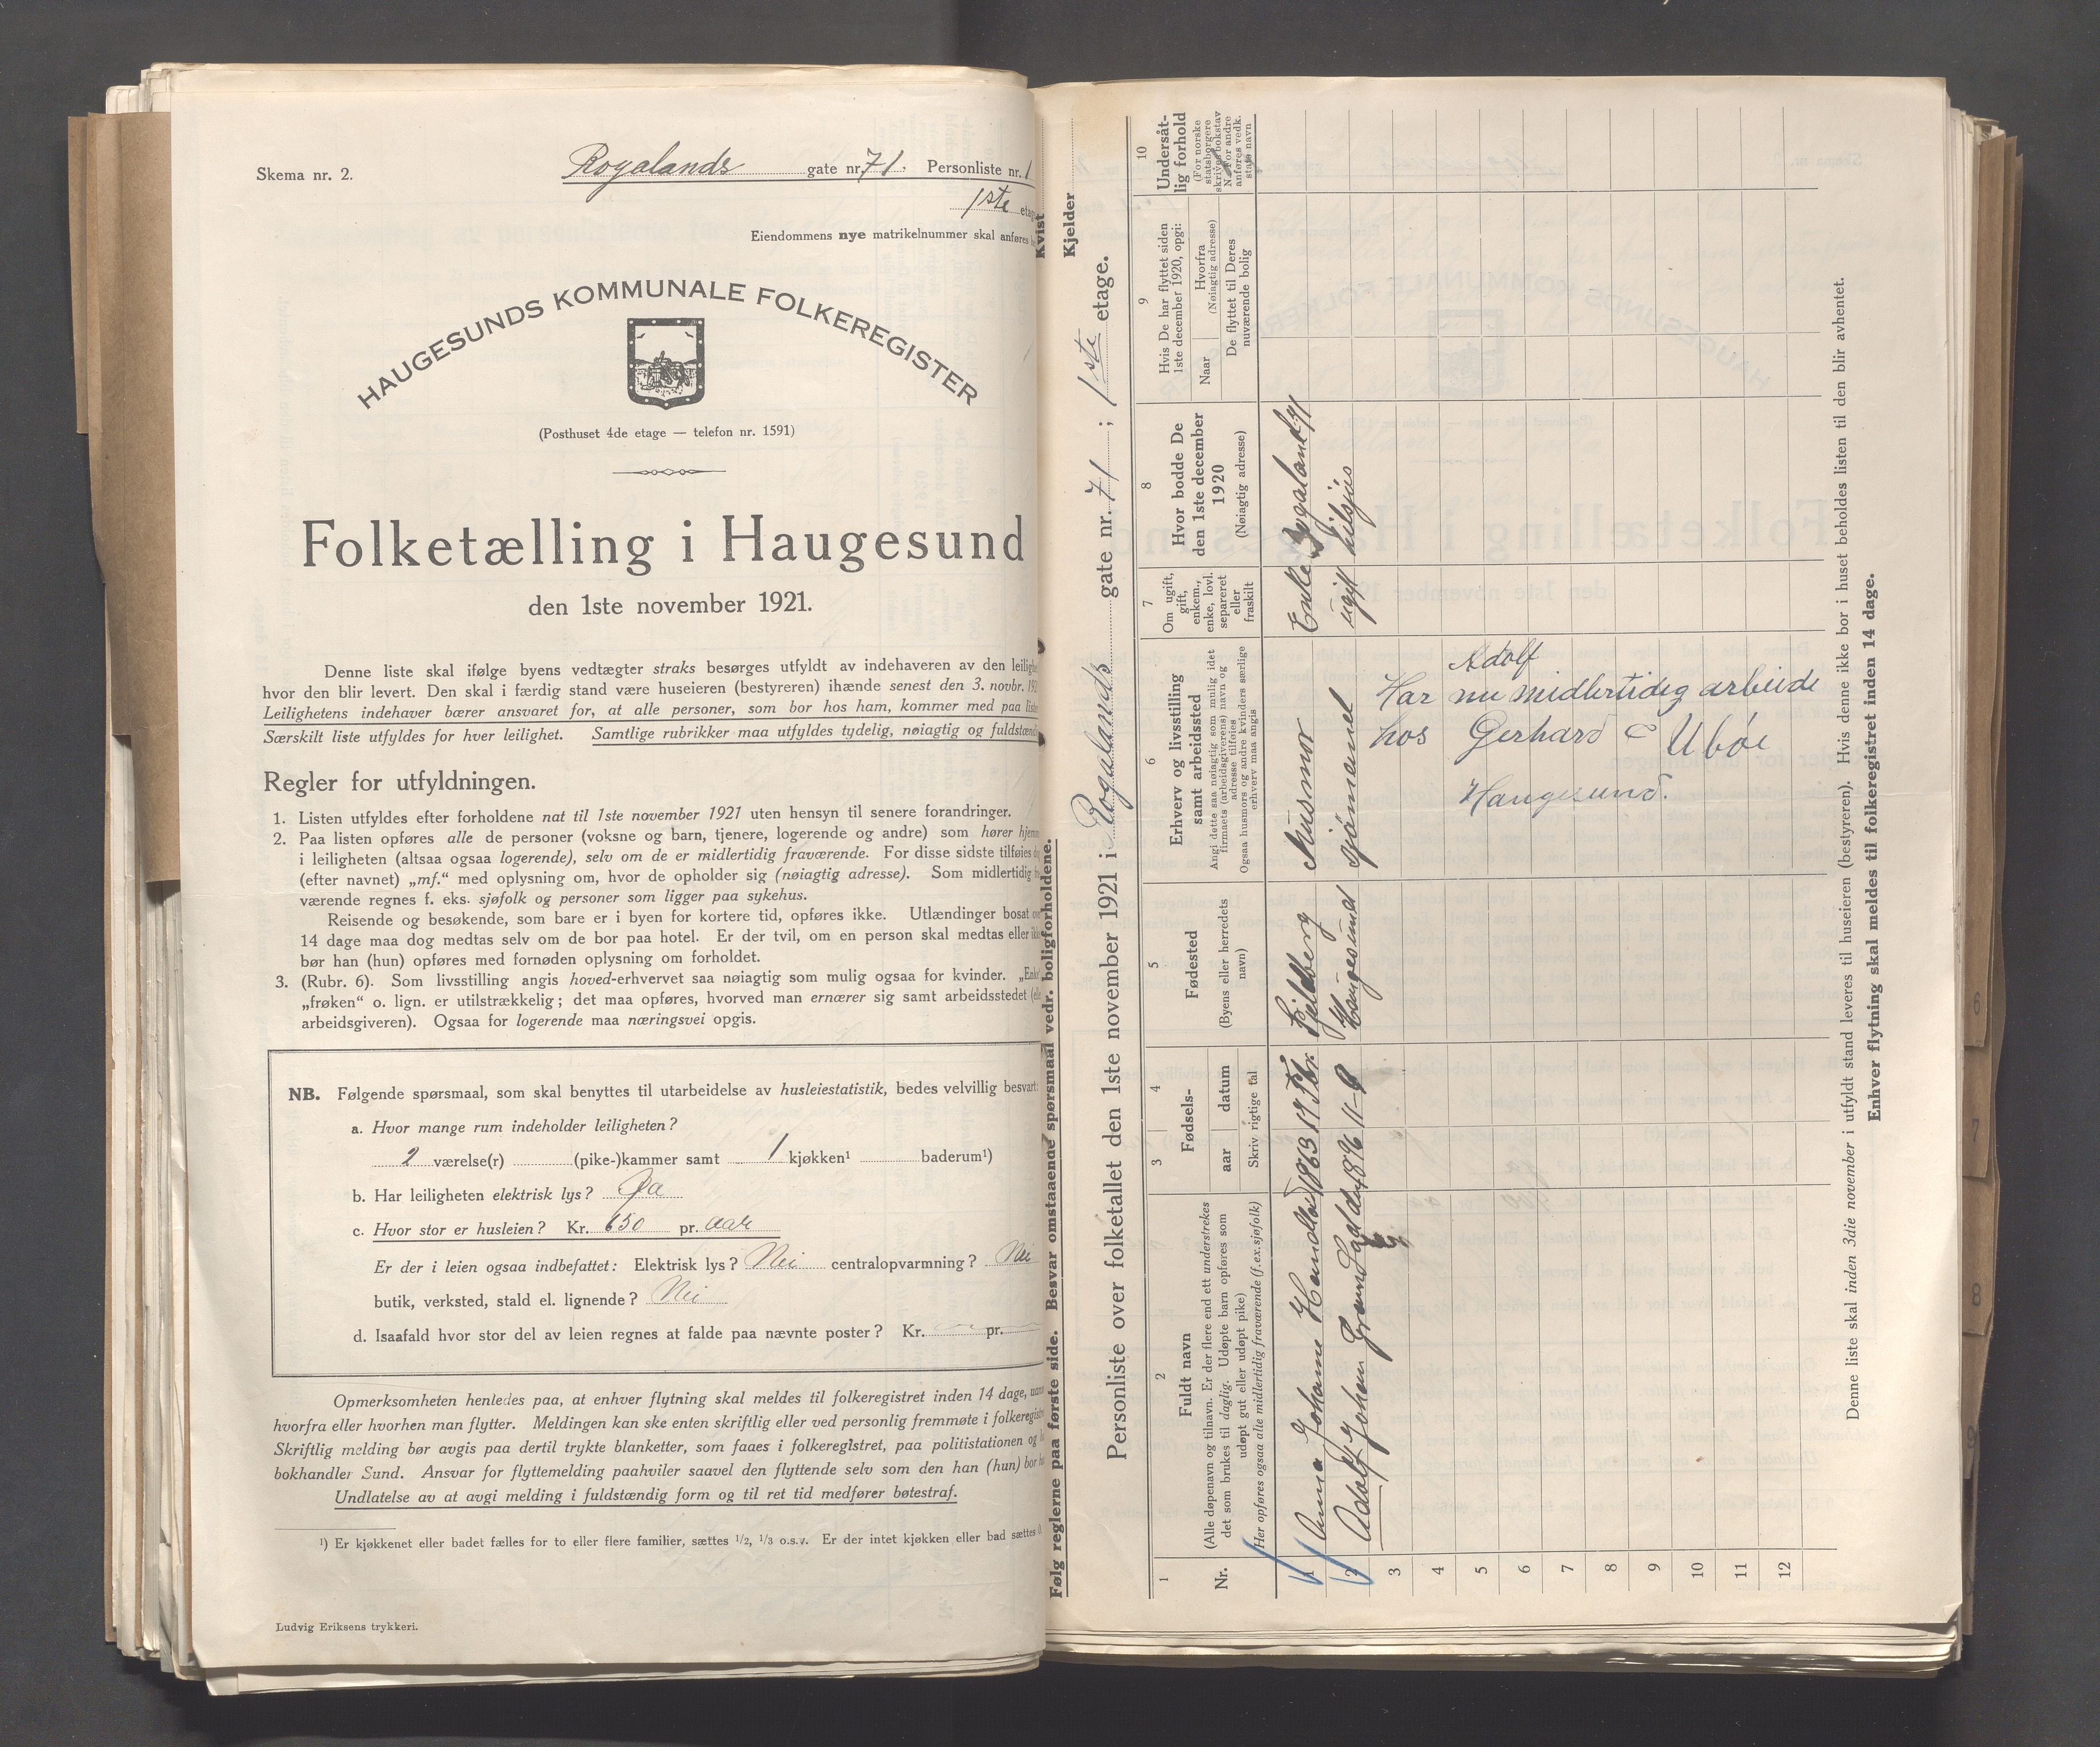 Skema nr. 2.
Rogalands gate nr. 71. Personliste nr. 1
1ste etage
Eiendommens nye matrikelnummer skal anføres
HAUGESUNDS KOMMUNALE FOLKEREGISTER
(Posthuset 4de etage — telefon nr. 1591)
Folketælling i Haugesund
den 1ste november 1921.
Denne liste skal ifølge byens vedtægter straks besørges utfyldt av indehaveren av den leilighe
hvor den blir levert. Den skal i færdig stand være huseieren (bestyreren) ihænde senest den 3. novbr. 192
Leilighetens indehaver bærer ansvaret for, at alle personer, som bor hos ham, kommer med paa liste
Særskilt liste utfyldes for hver leilighet. Samtlige rubrikker maa utfyldes tydelig, nøiagtig og fuldstænd
Regler for utfyldningen.
1. Listen utfyldes efter forholdene nat til 1ste november 1921 uten hensyn til senere forandringer.
2. Paa listen opføres alle de personer (voksne og barn, tjenere, logerende og andre) som hører hjem
i leiligheten (altsaa ogsaa logerende), selv om de er midlertidig fraværende. For disse sidste tilføies
(efter navnet) „mf.“ med oplysning om, hvor de opholder sig (nøiagtig adresse). Som midlertidig
værende regnes f. eks. sjøfolk og personer som ligger paa sykehus.
Reisende og besøkende, som bare er i byen for kortere tid, opføres ikke. Utlændinger bosat
14 dage maa dog medtas selv om de bor paa hotel. Er der tvil, om en person skal medtas eller
bør han (hun) opføres med fornøden oplysning om forholdet.
3. (Rubr. 6). Som livsstilling angis hoved-erhvervet saa nøiagtig som mulig ogsaa for kvinder. „Enke“
„frøken“ o. lign. er utilstrækkelig; det maa opføres, hvorved man ernærer sig samt arbeidsstedet
arbeidsgiveren). Ogsaa for logerende maa næringsvei opgis.
NB. Følgende spørsmaal, som skal benyttes til utarbeidelse av husleiestatistik, bedes velvillig besvart:
a. Hvor mange rum indeholder leiligheten?
2 værelse(r) (pike-)kammer samt 1 kjøkken¹ baderum¹)
b. Har leiligheten elektrisk lys? Ja
c. Hvor stor er husleien? Kr. 650 pr. aar
Er der i leien ogsaa indbefattet: Elektrisk lys? Nei centralopvarmning? Nei
butik, verksted, stald el. lignende? Nei
d. Isaafald hvor stor del av leien regnes at falde paa nævnte poster? Kr. — pr. —
Opmerksomheten henledes paa, at enhver flytning skal meldes til folkeregistret inden 14 dage,
hvorfra eller hvorhen man flytter. Meldingen kan ske enten skriftlig eller ved personlig fremmøte i folkeregist
Skriftlig melding bør avgis paa dertil trykte blanketter, som faaes i folkeregistret, paa politistationen og
bokhandler Sund. Ansvar for flyttemelding paahviler saavel den flyttende selv som den han (hun) bor
Undlatelse av at avgi melding i fuldstændig form og til ret tid medfører bøtestraf.
¹) Er kjøkkenet eller badet fælles for to eller flere familier, sættes 1/2, 1/3 o.s.v. Er der intet kjøkken eller bad sættes 0.
Ludvig Eriksens trykkeri.
Følg reglerne paa første side. Besvar omstaaende spørsmaal vedr. boligforholdene.
Kvist
Kjelder
Personliste over folketallet den 1ste november 1921 i Rogalands gate nr. 71; 1ste etage.
1
Nr.
2
Fuldt navn
(Alle døpenavn og tilnavn. Er der flere end ett understrekes
det som brukes til daglig. Udøpte barn opføres som
udøpt gut eller udøpt pike)
Her opføres ogsaa alle midlertidig fraværende (f.ex.sjøfolk)
3 4
Fødsels-
aar datum
Skriv rigtige tal
5
Fødested
(Byens eller herredets
navn)
6
Erhverv og livsstilling
samt arbeidssted
Angi dette saa nøiagtig som mulig idet
firmaets (arbeidsgiverens) navn og
adresse tilføies
Ogsaa husmors og andre kvinders særlige
erhverv maa angis
7
Om ugift,
gift,
enkem.,
enke, lovl.
separeret
eller
fraskilt
8
Hvor bodde De
den 1ste december
1920
(Nøiagtig adresse)
9
Hvis De har flyttet siden
1ste december 1920, opgi:
Naar
Hvorfra
(Nøiagtig adresse)
De flyttet til Deres
nuværende bolig
10
Undersåt-
lig forhold
(For norske
statsborgere
skrives bokstav
N. For andre
anføres vedk.
stats navn
1 Anna Johanne 1863 17 Fbr. Fjeldberg Husmor Enke Rogalandsg 71
2 Adolf Johan 1896 11-8 Haugesund sjømand ugift tilsjøs
3
4
5
6
7
8
9
10
11
12
Adolf
Har nu midlertidig arbeide
hos Gerhard Ubøe
Haugesund.
Denne liste skal inden 3die november i utfyldt stand leveres til huseieren (bestyreren). Hvis denne ikke bor i huset beholdes listen til den blir avhentet.
Enhver flytning skal meldes til folkeregistret inden 14 dage.
6
7
8